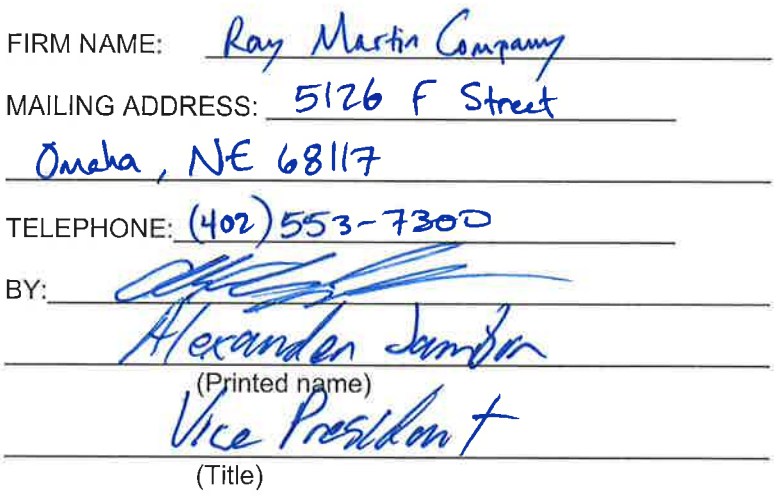 FIRM NAME: Ray Martin Company
MAILING ADDRESS: 5126 F Street
Omaha, NE 68117
TELEPHONE: (402) 553-7300
BY:
Alexander
(Printed name)
Vice President
(Title)